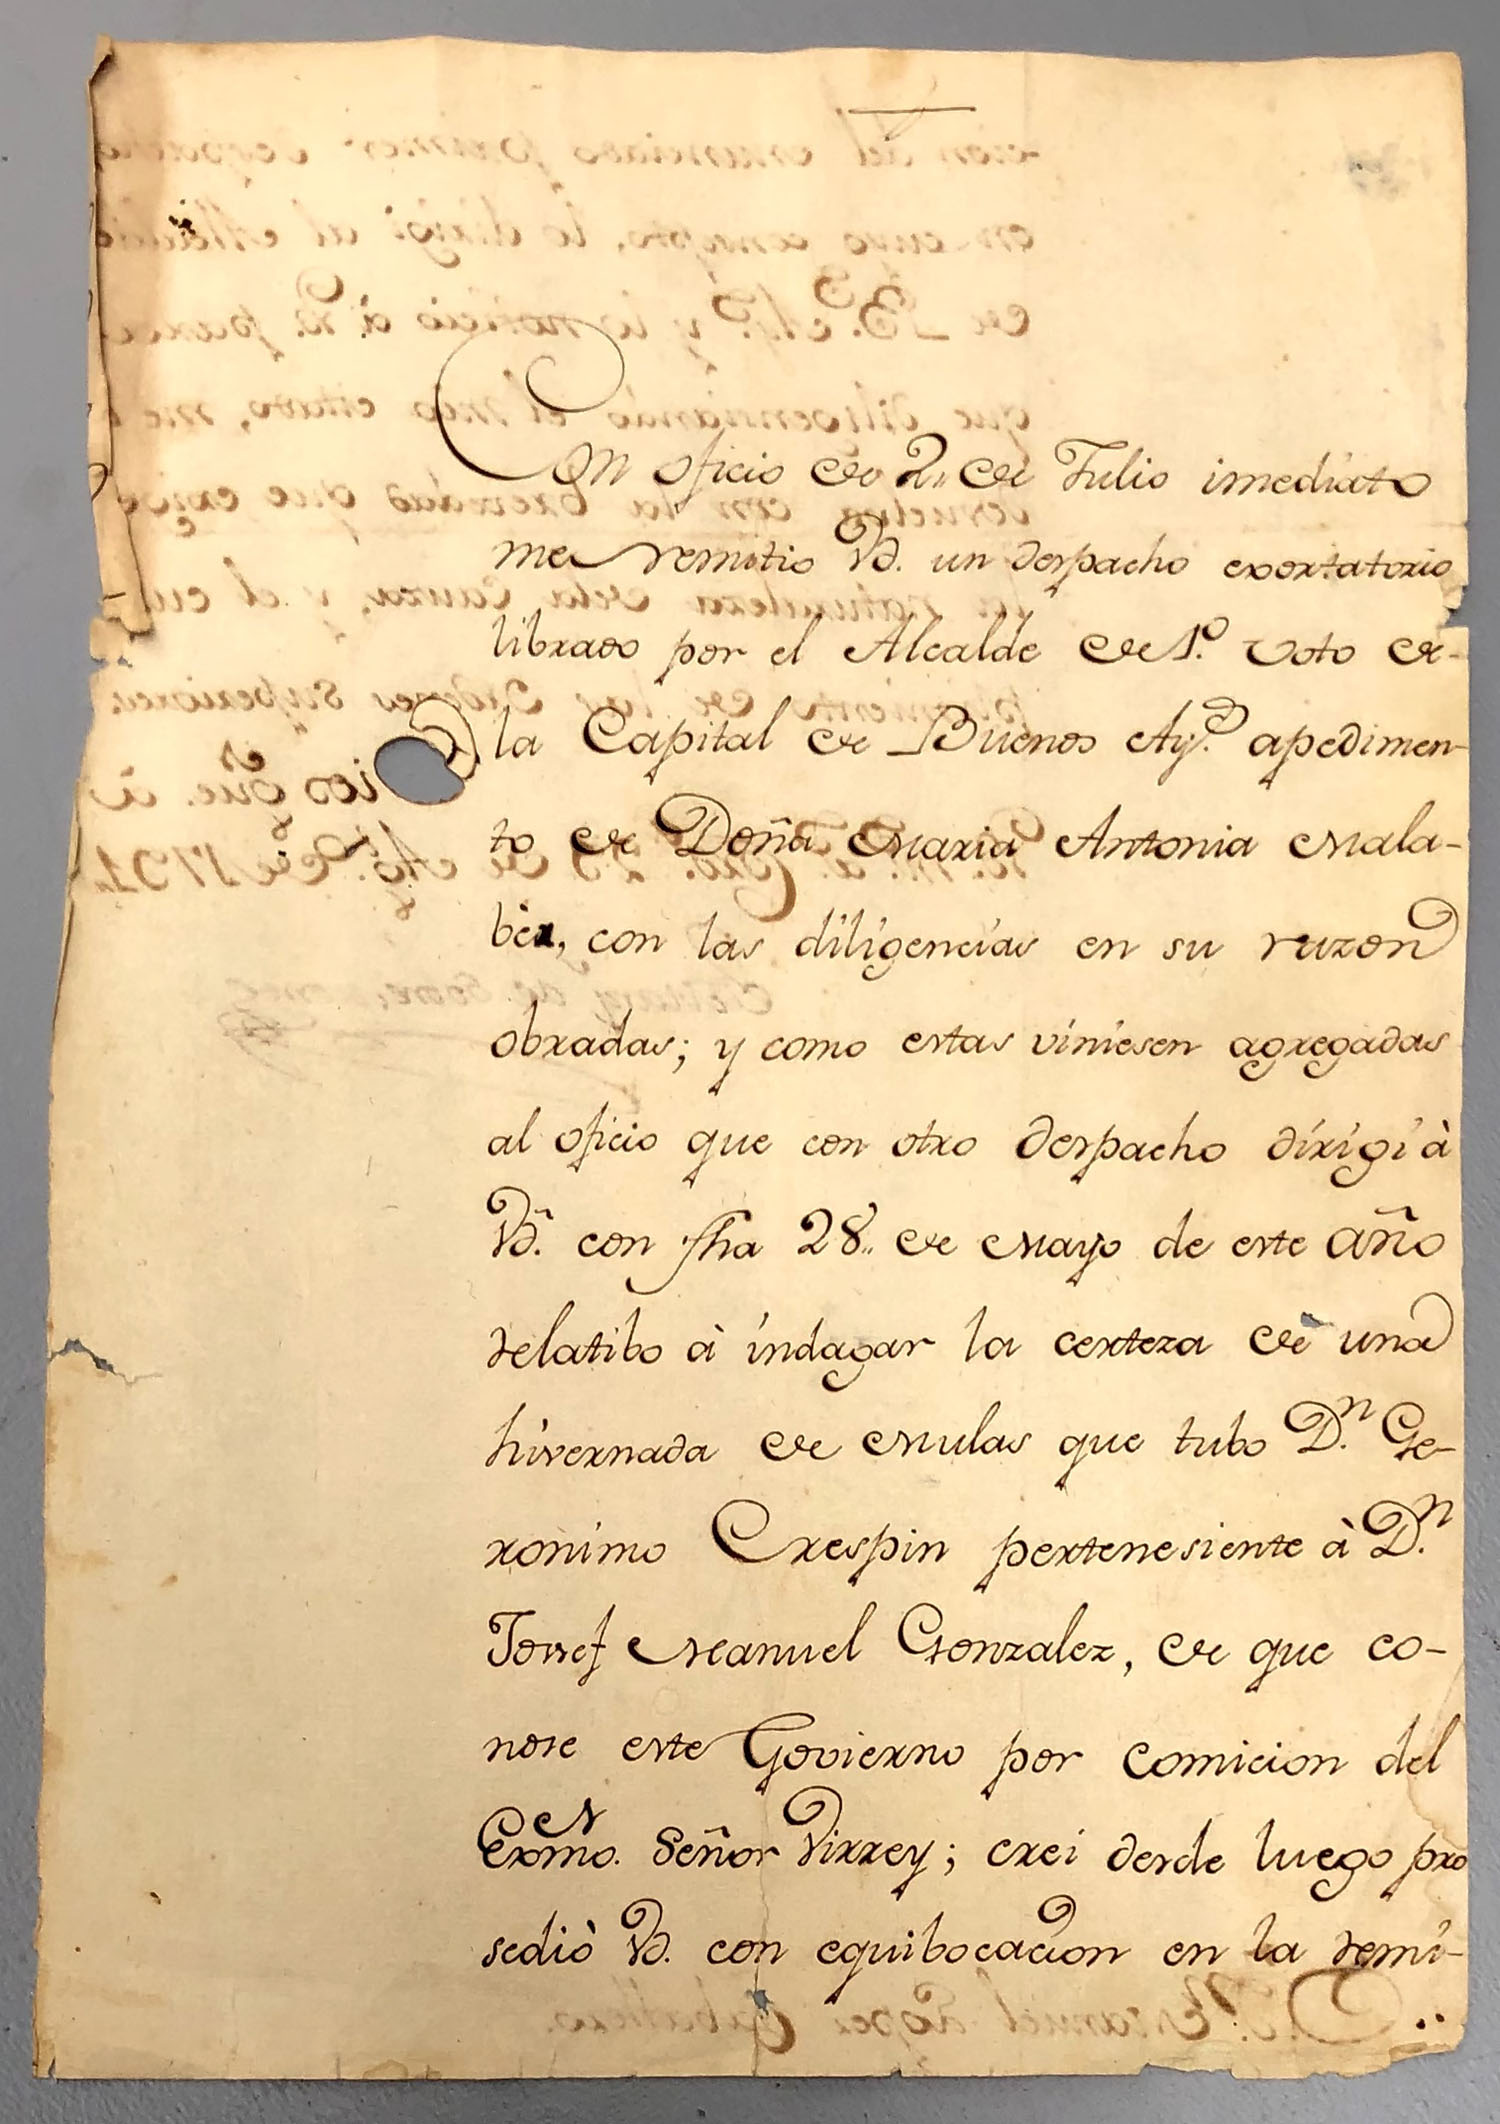 Con oficio de 2,, de Julio imediato
me remitio Vd. un despacho exortatorio
librado por el Alcalde de 1.º voto de
la Capital de Buenos Ay.s apedimen-
to de Doña Maria Antonia Mala-
bèr, con las diligencias en su razon
obradas; y como estas viniesen agregadas
al oficio que con otro despacho dirigi à
Vd. con fha 28,, de Mayo de este año
relatibo à indagar la certeza de una
hivernada de Mulas que tubo D.n Ge-
ronimo Crespin pertenesiente à D.n
Jossef Manuel Gonzalez, de que co-
nose este Govierno por comicion del
Exmo. Señor Virrey; crei desde luego pro
sediò Vd. con equibocacion en la remi-